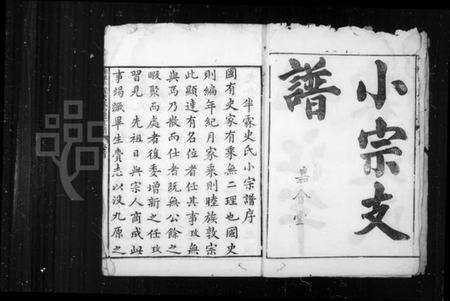 小宗支
譜
華霖史氏小宗譜序
國有史家有乘無二理也國史
則編年紀月家乘則睦族敦宗
此顯達有名位者任其事攻無
與焉乃散而仕者既無公餘之
暇聚而處者復委增新之任攻
習見先祖日與宗人商成此
事竭識畢生賷志以沒九原之